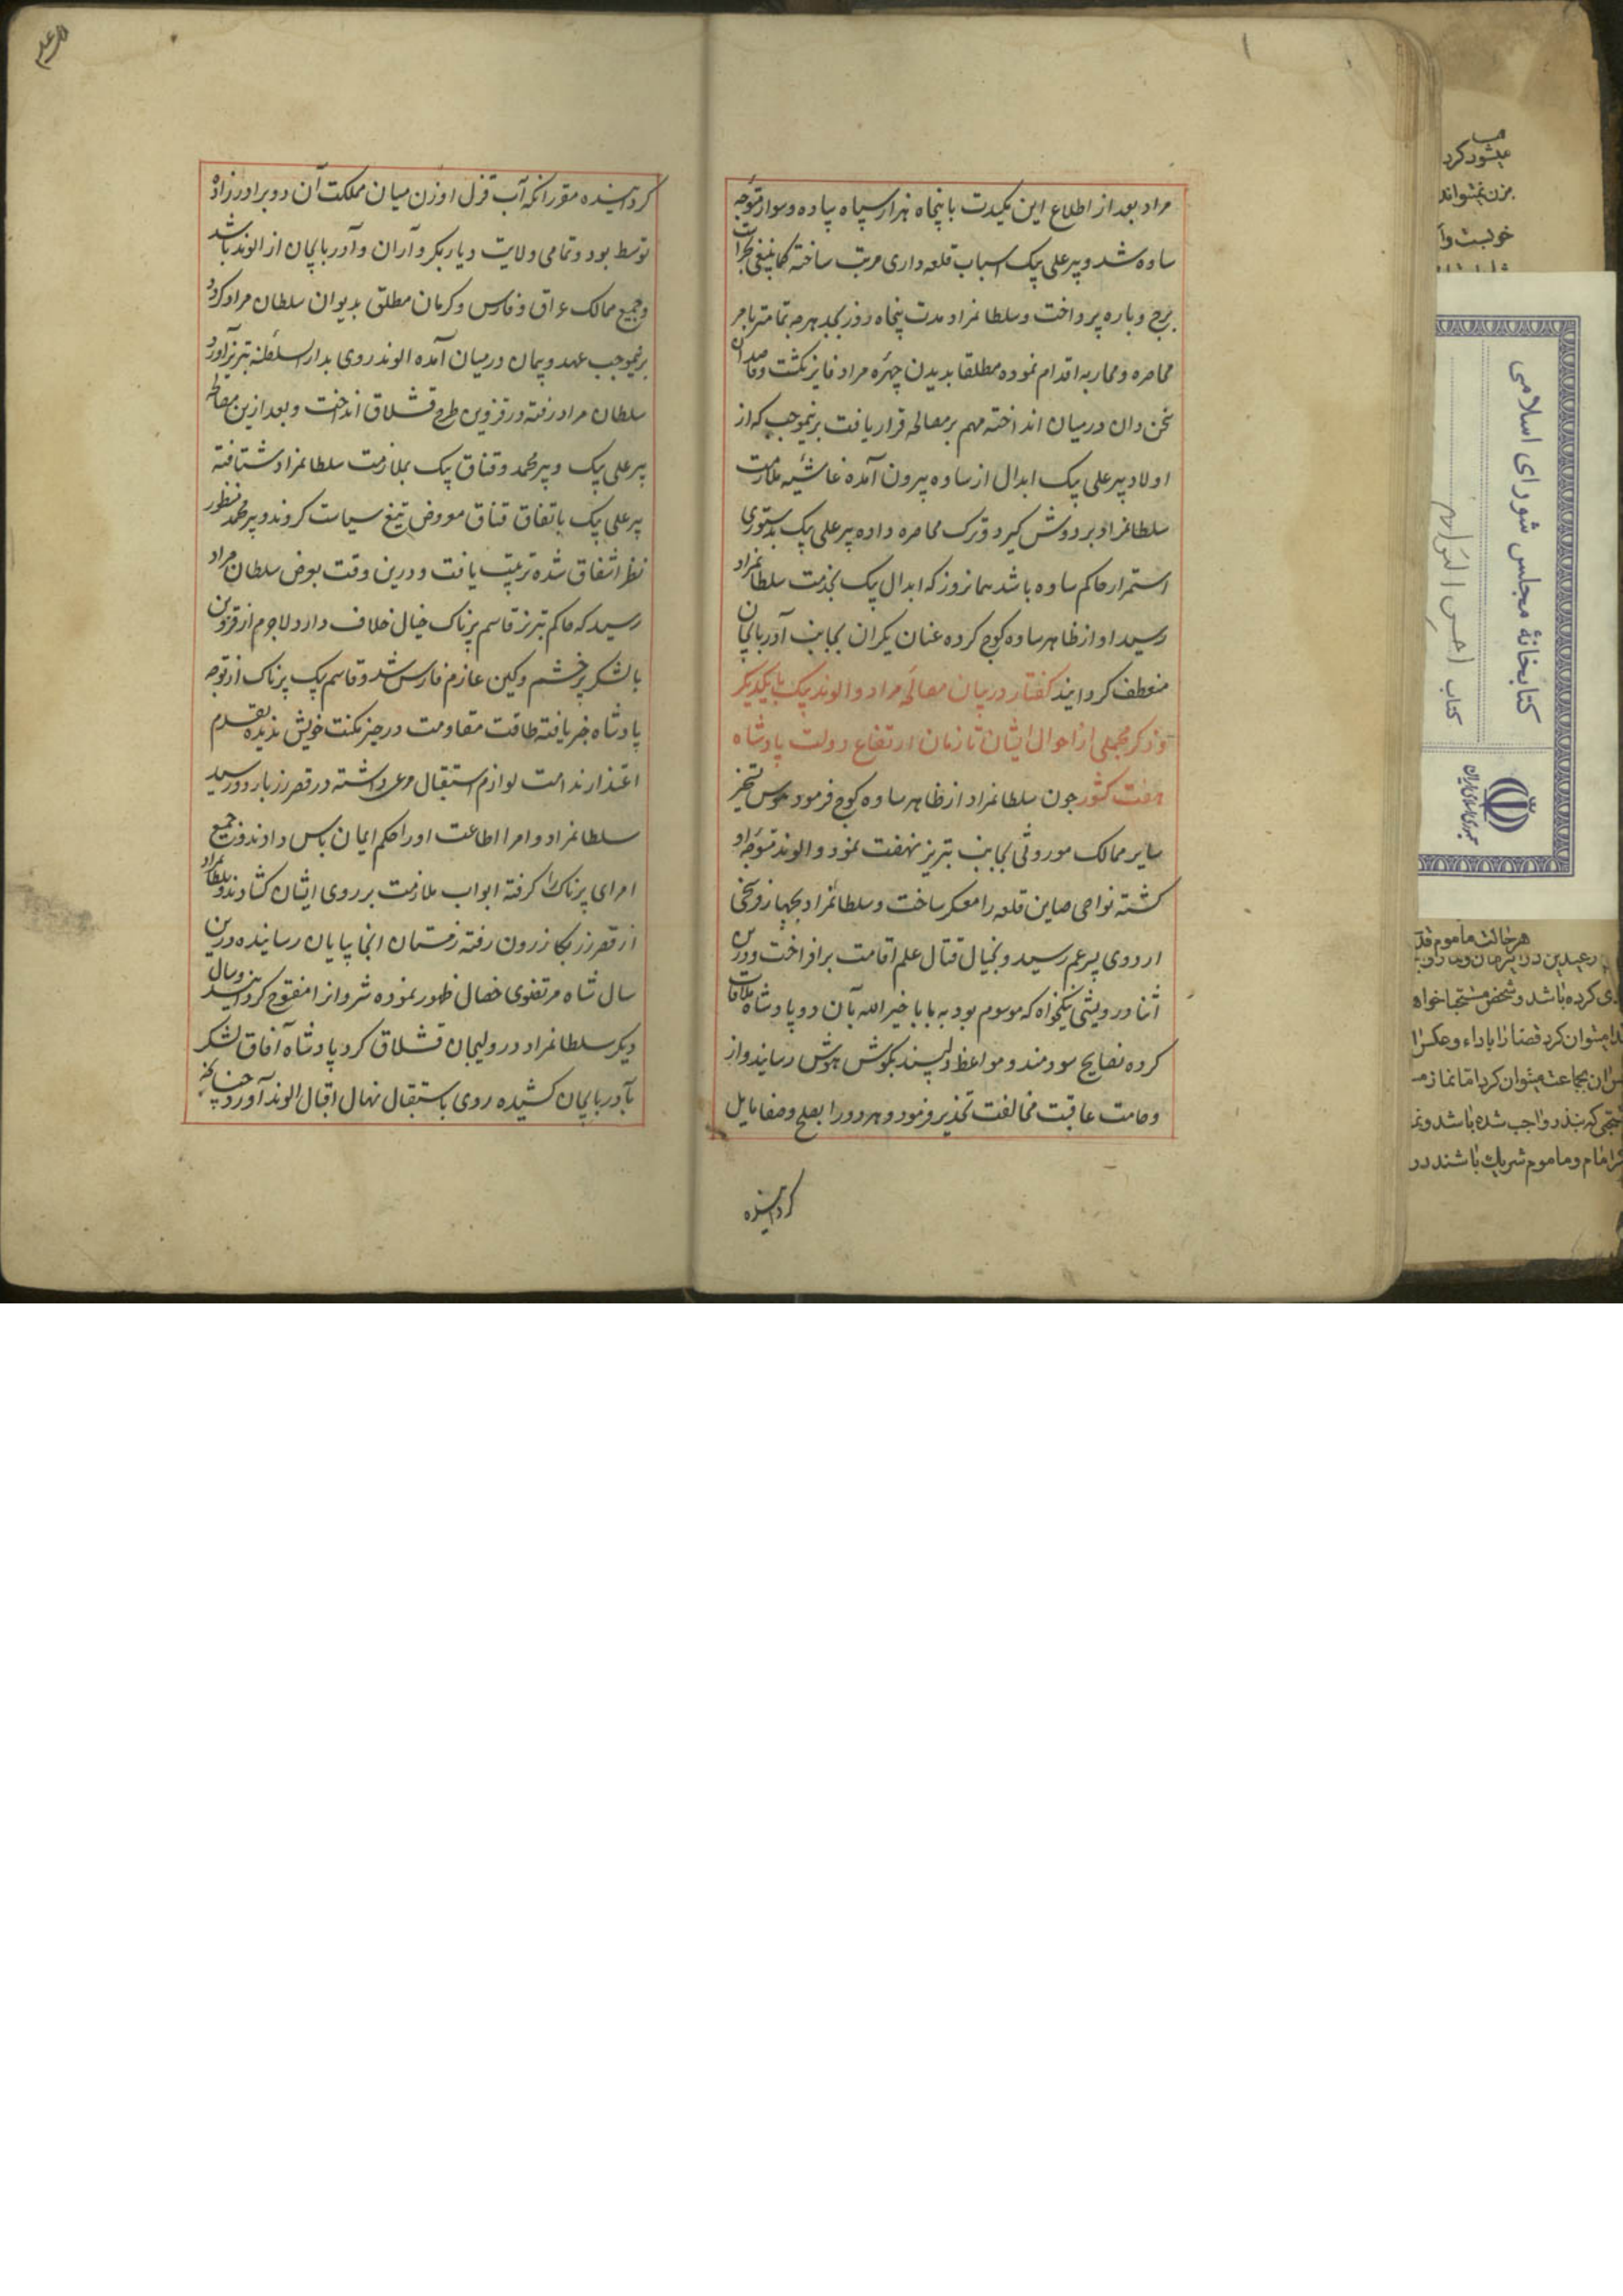 مراد بعد از اطلاع این مکیدت با پنجاه هزار سپاه پیاده و سوار متوجه
ساوه شد و پیر علی بیک اسباب قلعه داری مرتب ساخته کما ینبغی بحراست
برج و باره پرداخت و سلطانمراد مدت پنجاه روز بجد هر چه تمامتر بامر
محاصره و محاربه اقدام نموده مطلقا بدیدن چهره مراد فایز نکشت و قاصدان
سخن دان در میان انداخته مهم بر مصالحه قرار یافت برنیموجب که از
اولاد پیر علی بیک ابدال از ساوه بیرون آمده غاشیه ملازمت
سلطانمراد بر دوش کیرد و ترک محاصره داده پیر علی بیک بدستوری
استمرار حاکم ساوه باشد همانروز که ابدال بیک بخدمت سلطانمراد
رسید او از ظاهر ساوه کوچ کرده عنان یکران بجانب آذربایجان
منعطف کردانید کفتار در بیان مصالحۀ مراد و الوند بیک با یکدیکر
و ذکر مجملی از احوال ایشان تا زمان ارتفاع دولت پادشاه
هفت کشور چون سلطانمراد از ظاهر ساوه کوچ فرمود بهوس تسخیر
سایر ممالک موروثی بجانب تبریز نهضت نمود و الوند متوجه او
کشته نواحی صاین قلعه را معسکر ساخت و سلطانمراد بچهار فرسخی
اردوی پسر عم رسید و بخیال قتال علم اقامت برافراخت و درین
اثنا درویشی نیکخواه که موسوم بود به بابا خیر الله بآن دو پادشاه ملاقات
کرده نصایح سودمند و مواعظ دلپسند بکوش هوش رسانید و از
وخامت عاقبت مخالفت تحذیر فرمود و هر دو را بصلح و صفا مایل
کردانیده
کردانیده مقرر انکه آب قزل اوزن میان مملکت آن دو برادرزاده
توسط بود و تمامی ولایت دیاربکر و آران و آذربایجان از الوند باشد
و جمیع ممالک عراق و فارس و کرمان مطلق بدیوان سلطان مراد کردد
برنیموجب عهد و پیمان در میان آمده الوند روی بدار السلطنه تبریز آورد
سلطان مراد رفته در قزوین طرح قشلاق انداخت و بعد ازین مصالحه
پیر علی بیک و پیر محمد و قناق بیک بملازمت سلطانمراد شتافته
پیر علی بیک باتفاق قناق معروض تیغ سیاست کردند و پیر محمد منظور
نظر اشفاق شده تربیت یافت و درین وقت بعرض سلطان مراد
رسید که حاکم تبریز قاسم پرناک خیال خلاف دارد لاجرم از قزوین
با لشکر پر خشم و کین عازم فارس شد و قاسم بیک پرناک از توجه
پادشاه خبر یافته طاقت مقاومت در حیز مکنت خویش ندیده بقدم
اعتذار ندامت لوازم استقبال مرعی داشته در قصر زر باردو رسید
سلطانمراد و امرا اطاعت او را حکم ایمان باس دادند و جمیع
امرای پرناک را کرفته ابواب ملازمت بر روی ایشان کشادند و سلطانمراد
از قصر زر بکازرون رفته زمستان انجا بپایان رسانیده درین
سال شاه مرتضوی خصال ظهور نموده شروانرا مفتوح کردانید و سال
دیکر سلطانمراد در ولیجان قشلاق کرد پادشاه آفاق لشکر
بآذربایجان کشیده روی باستقبال نهال اقبال الوند آورد چنانچه
کتابخانۀ مجلس شورای اسلامی
کتاب احسن التواریخ
جمهوری اسلامی ایران
میشود کرد
هر حالت ماموم